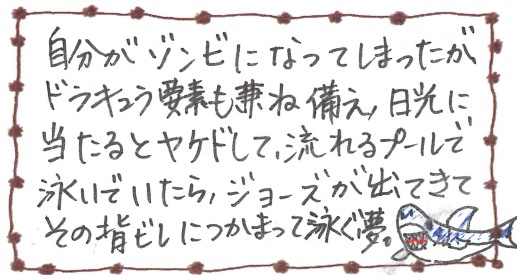 自分がゾンビになってしまったが、
ドラキュラ要素も兼ね備え、日光に
当たるとヤケドして、流れるプールで
泳いでいたら、ジョーズが出てきて
その背ビレにつかまって泳ぐ夢。